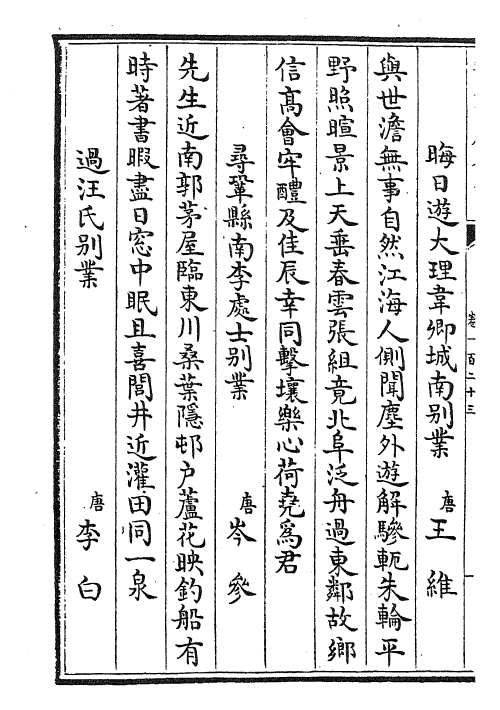 卷一百二十三
晦日遊大理韋卿城南别業 唐 王維
與世澹無事自然江海人側聞塵外遊解驂軛朱輪平
野照暄景上天垂春雲張組竟北阜泛舟過東鄰故鄉
信髙會牢醴及佳辰幸同擊壤樂心荷堯爲君
尋鞏縣南李處士别業 唐 岑參
先生近南郭茅屋臨東川桑葉隱邨户蘆花映釣船有
時著書暇盡日窓中眠且喜閭井近灌田同一泉
過汪氏别業 唐 李白